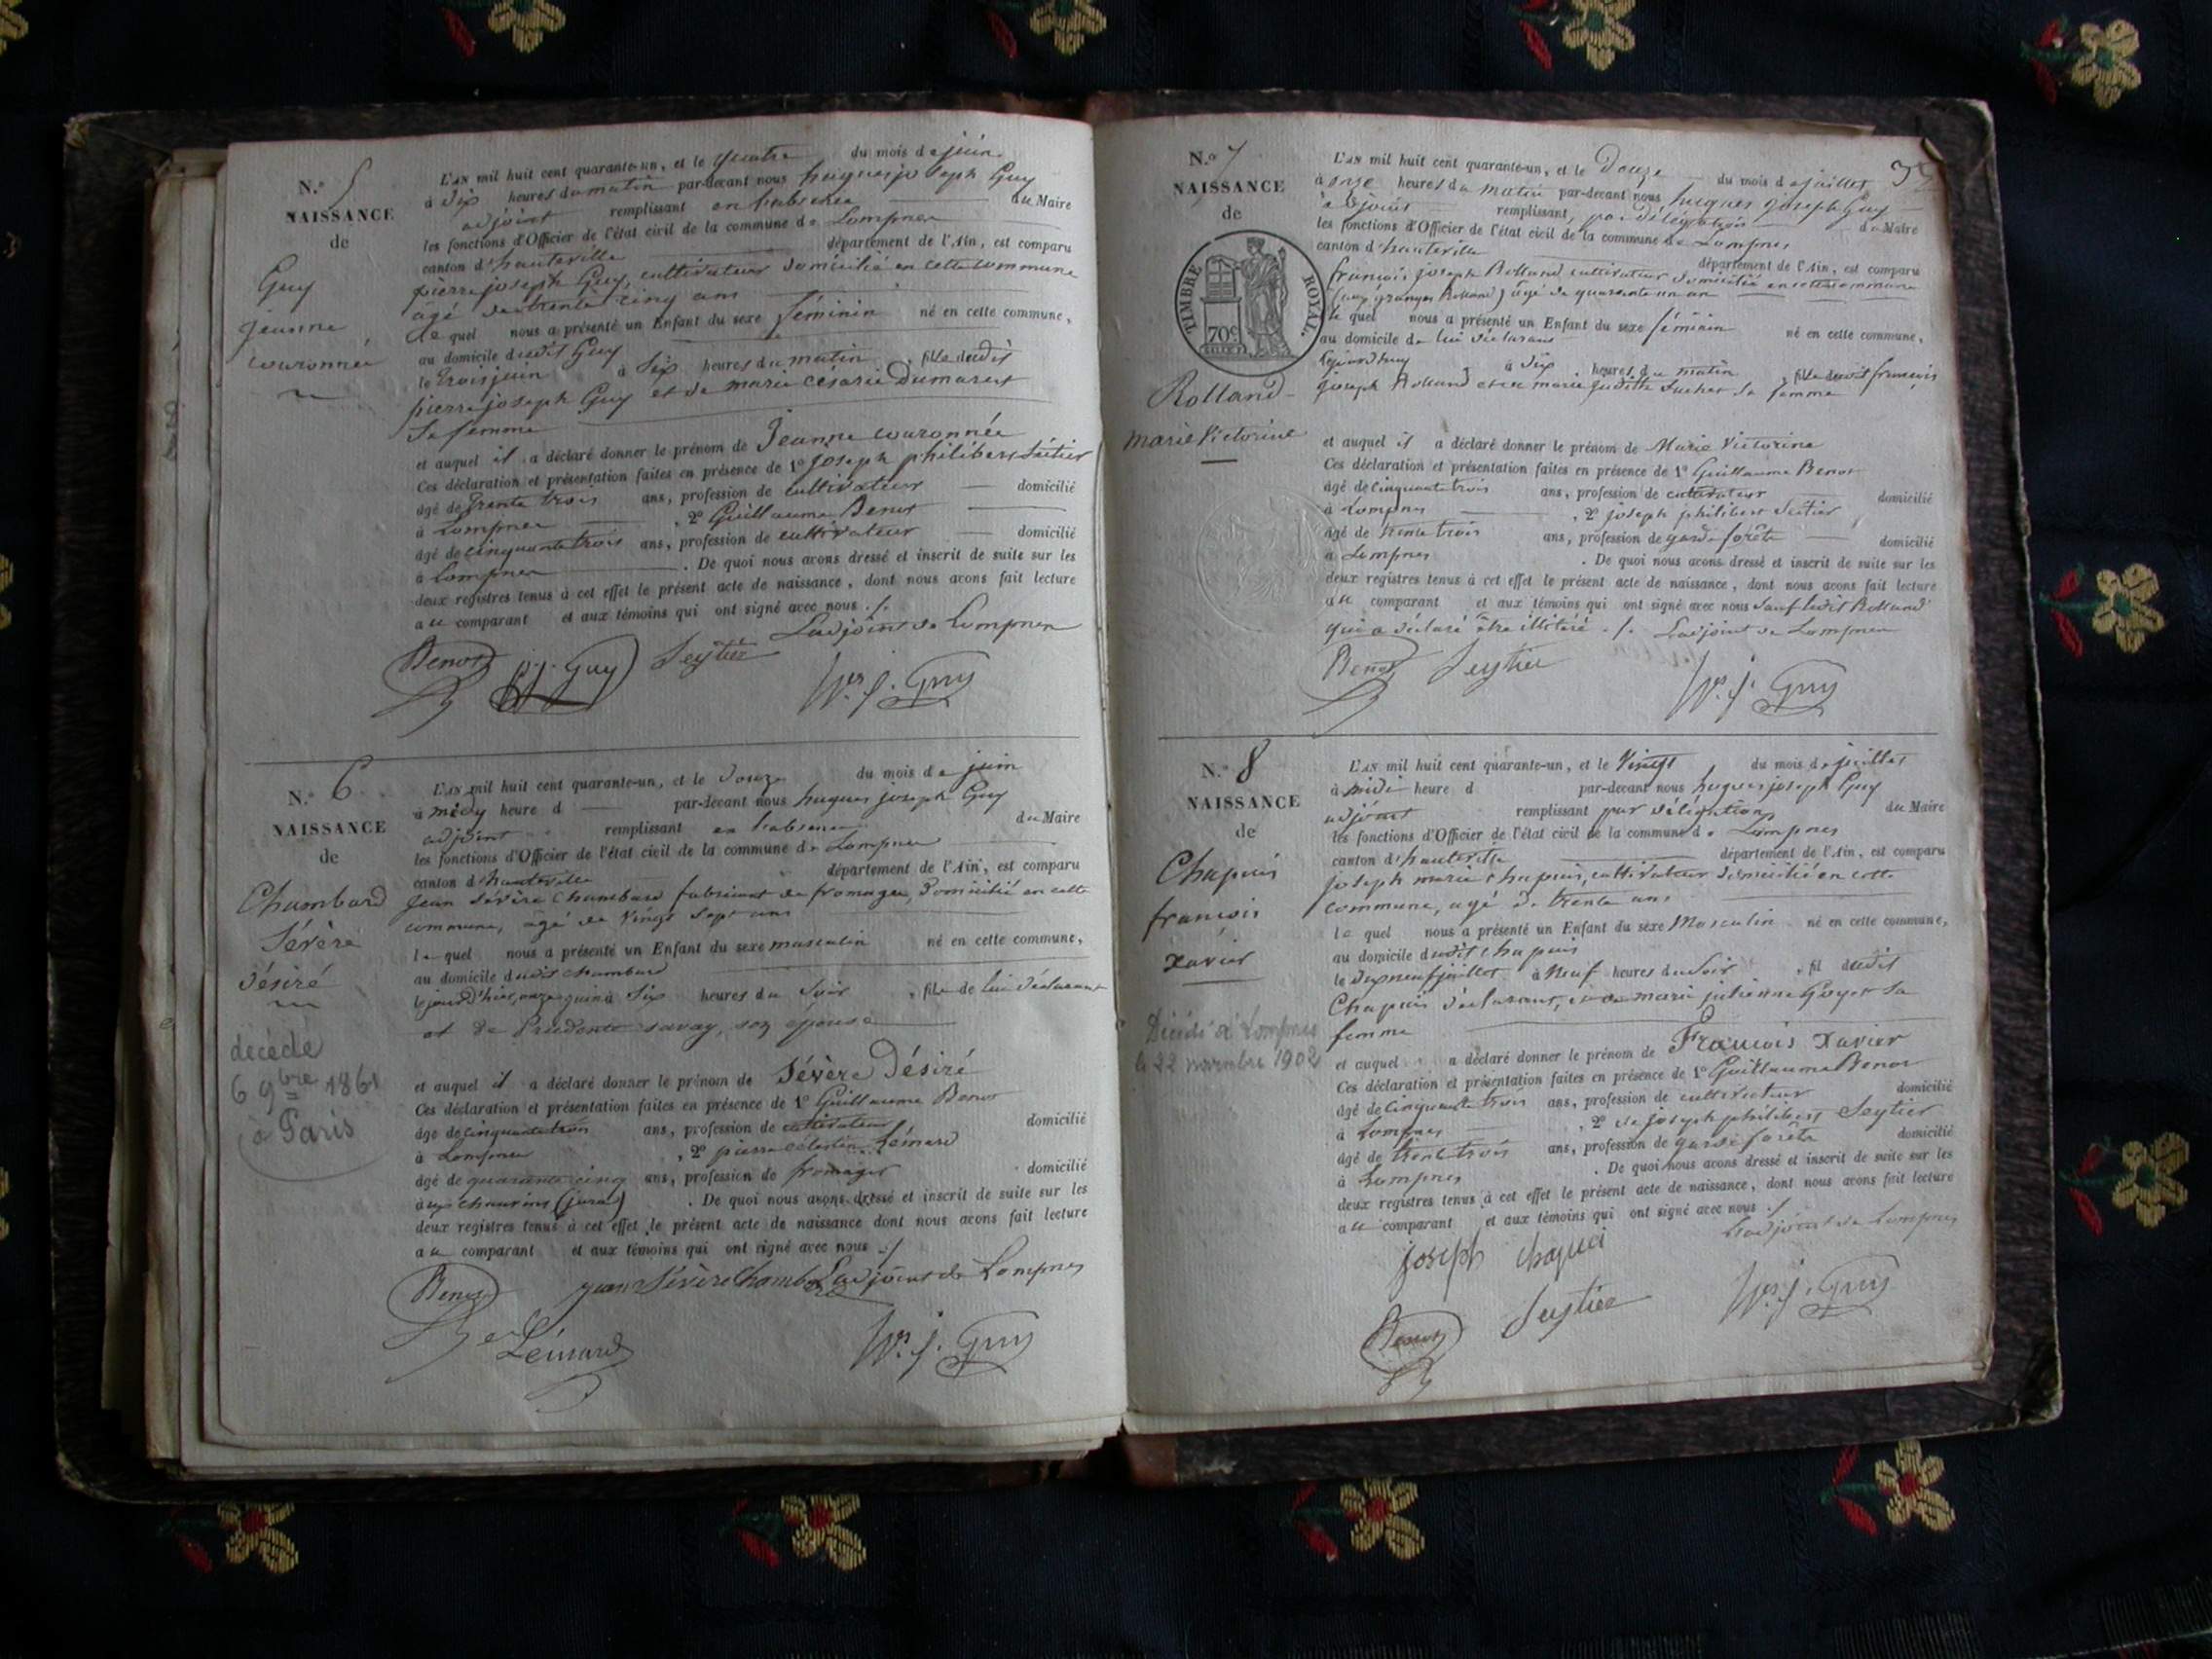 N.° 5
NAISSANCE
de
Guy
jeanne
couronnée
L'AN mil huit cent quarante-un, et le quatre du mois de juin
à dix heures du matin par-devant nous hugues joseph Guy
adjoint remplissant en l'absence du Maire
les fonctions d'Officier de l'état civil de la commune de Lompnes
canton d'hauteville département de l'Ain, est comparu
pierre joseph Guy, cultivateur domicilié en cette commune
âgé de trente cinq ans
lequel nous a présenté un Enfant du sexe féminin né en cette commune,
au domicile dudit Guy
le trois juin à six heures du matin, fille dudit
pierre joseph Guy et de marie césarie Dumarest
sa femme
et auquel il a déclaré donner le prénom de Jeanne couronnée
Ces déclaration et présentation faites en présence de 1° joseph philibert Seitier
âgé de trente trois ans, profession de cultivateur domicilié
à Lompnes, 2° Guillaume Benot
âgé de cinquante trois ans, profession de cultivateur domicilié
à Lompnes. De quoi nous avons dressé et inscrit de suite sur les
deux registres tenus à cet effet le présent acte de naissance, dont nous avons fait lecture
au comparant et aux témoins qui ont signé avec nous ./.
L'adjoint de Lompnes
Benot p.j. Guy Seytier hgs. j. Guy
N.° 6
NAISSANCE
de
Chambard
Sévère
désiré
décédé
6 9bre 1861
à Paris
L'AN mil huit cent quarante-un, et le douze du mois de juin
à midy heure d par-devant nous hugues joseph Guy
adjoint remplissant en l'absence du Maire
les fonctions d'Officier de l'état civil de la commune de Lompnes
canton d'hauteville département de l'Ain, est comparu
jean sévère Chambard fabricant de fromages, domicilié en cette
commune, âgé de vingt sept ans
lequel nous a présenté un Enfant du sexe masculin né en cette commune,
au domicile dudit chambard
le jour d'hier, onze juin à six heures du soir, fils de lui déclarant
et de Prudente savay, son épouse
et auquel il a déclaré donner le prénom de Sévère Désiré
Ces déclaration et présentation faites en présence de 1° Guillaume Benot
âgé de cinquante trois ans, profession de cultivateur domicilié
à Lompnes, 2° pierre célestin Lémard
âgé de quarante cinq ans, profession de fromager domicilié
à (jura). De quoi nous avons dressé et inscrit de suite sur les
deux registres tenus à cet effet le présent acte de naissance dont nous avons fait lecture
au comparant et aux témoins qui ont signé avec nous ./
Benot jean Sévère Chambard L'adjoint de Lompnes
Lémard hgs. j. Guy
N.° 7
NAISSANCE
de
TIMBRE ROYAL.
70c
Rolland
marie Victorine
L'AN mil huit cent quarante-un, et le Douze du mois de juillet
à onze heures du matin par-devant nous hugues joseph Guy
adjoint remplissant, par délégation du Maire
les fonctions d'Officier de l'état civil de la commune de Lompnes
canton d'hauteville département de l'Ain, est comparu
françois joseph Rolland cultivateur domicilié en cette commune
(aux granges Rolland) âgé de quarante un an
lequel nous a présenté un Enfant du sexe féminin né en cette commune,
au domicile de lui déclarant
à six heures du matin, fille dudit françois
joseph Rolland et de marie judith sa femme
et auquel il a déclaré donner le prénom de Marie Victorine
Ces déclaration et présentation faites en présence de 1° Guillaume Benot
âgé de cinquante trois ans, profession de cultivateur domicilié
à Lompnes, 2° joseph philibert Seitier
âgé de trente trois ans, profession de garde forêts domicilié
à Lompnes. De quoi nous avons dressé et inscrit de suite sur les
deux registres tenus à cet effet le présent acte de naissance, dont nous avons fait lecture
au comparant et aux témoins qui ont signé avec nous sauf ledit Rolland
qui a déclaré être illitéré ./. L'adjoint de Lompnes
Benot Seytier hgs. j. Guy
N.° 8
NAISSANCE
de
Chapuis
françois
xavier
Décédé à Lompnes
le 22 novembre 1902
L'AN mil huit cent quarante-un, et le Vingt du mois de juillet
à midi heure d par-devant nous hugues joseph Guy
adjoint remplissant par délégation du Maire
les fonctions d'Officier de l'état civil de la commune de Lompnes
canton d'hauteville département de l'Ain, est comparu
joseph marie chapuis, cultivateur domicilié en cette
commune, âgé de trente ans
lequel nous a présenté un Enfant du sexe Masculin né en cette commune,
au domicile dudit chapuis
le dix neuf juillet à Neuf heures du soir, fils dudit
Chapuis déclarant, et de marie julienne Goyet sa
femme
et auquel a déclaré donner le prénom de François Xavier
Ces déclaration et présentation faites en présence de 1° Guillaume Benot
âgé de cinquante trois ans, profession de cultivateur domicilié
à Lompnes, 2° de joseph philibert Seytier
âgé de trente trois ans, profession de garde forêts domicilié
à Lompnes. De quoi nous avons dressé et inscrit de suite sur les
deux registres tenus à cet effet le présent acte de naissance, dont nous avons fait lecture
au comparant et aux témoins qui ont signé avec nous ./
L'adjoint de Lompnes
joseph chapuis
Benot Seytier hgs. j. Guy